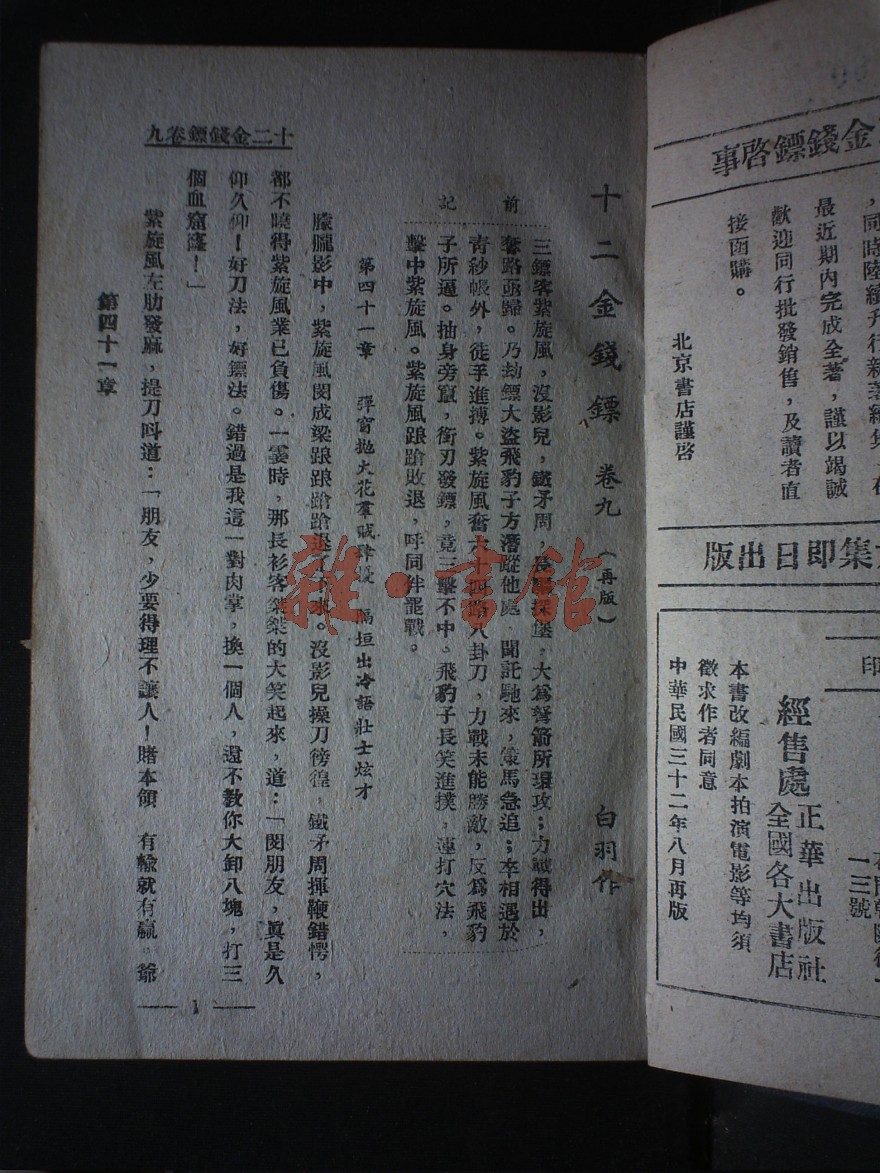 事啓鏢錢金
同時陸續刋行新著續集
最近期內完成全著，謹以竭誠
歡迎同行批發銷售，及讀者直
接函購。
北京書店謹啓
版出日卽集
印
一三號
經售處
正華出版社
全國各大書店
本書改編劇本拍演電影等均須
徵求作者同意
中華民國三十二年八月再版
十二金錢鏢 卷九（再版） 白羽作
前記
三鏢客紫旋風，沒影兒，鐵矛周，探堡，大爲弩箭所環攻；力戰得出，
奪路亟歸。乃劫鏢大盜飛豹子方潛蹤他處 聞訊馳來，策馬急追；卒相遇於
青紗帳外，徒手進搏。紫旋風奮六十四路八卦刀，力戰未能勝敵，反爲飛豹
子所逼。抽身旁竄，銜刃發鏢，竟三擊不中。飛豹子長笑進撲，運打穴法，
擊中紫旋風。紫旋風踉蹌敗退，呼同伴罷戰。
第四十一章 彈窗拋火花羣賊肆擾 隔垣出冷語壯士炫才
朦朧影中，紫旋風閔成梁踉踉蹌蹌退下來。沒影兒操刀徬徨，鐵矛周揮鞭錯愕，
都不曉得紫旋風業已負傷。一霎時，那長衫客桀桀的大笑起來，道：「閔朋友，眞是久
仰久仰！好刀法，好鏢法。錯過是我這一對肉掌，換一個人，還不教你大卸八塊，打三
個血窟窿！」
紫旋風左肋發麻，提刀叫道：「朋友，少要得理不讓人！賭本領 有輸就有贏。爺
十二金錢鏢卷九
第四十一章
1
雜·書館